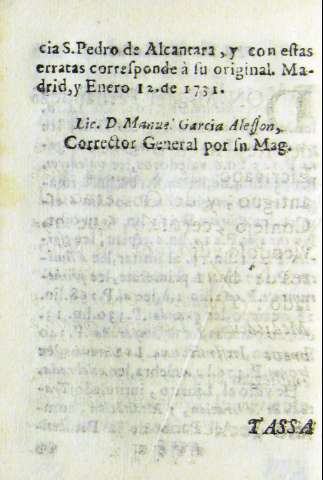 cia S. Pedro de Alcantara, y con eſtas
erratas correſponde à ſu original. Ma-
drid, y Enero 12. de 1731.
Lic. D. Manuel Garcia Aleſſon,
Corrector General por ſu Mag.
TASSA